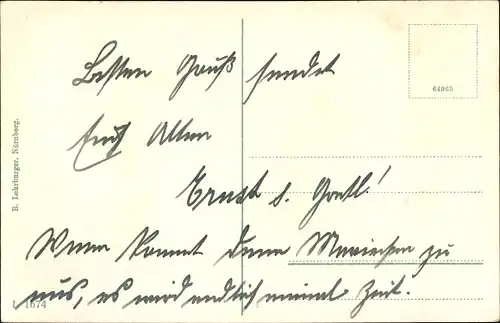 Besten Gruß sendet
Euch Allen
Ernst u. Gretl!
Wann kommt denn Mariechen zu
uns, es wird endlich einmal Zeit.
64965
B. Lehrburger, Nürnberg.
L 1674